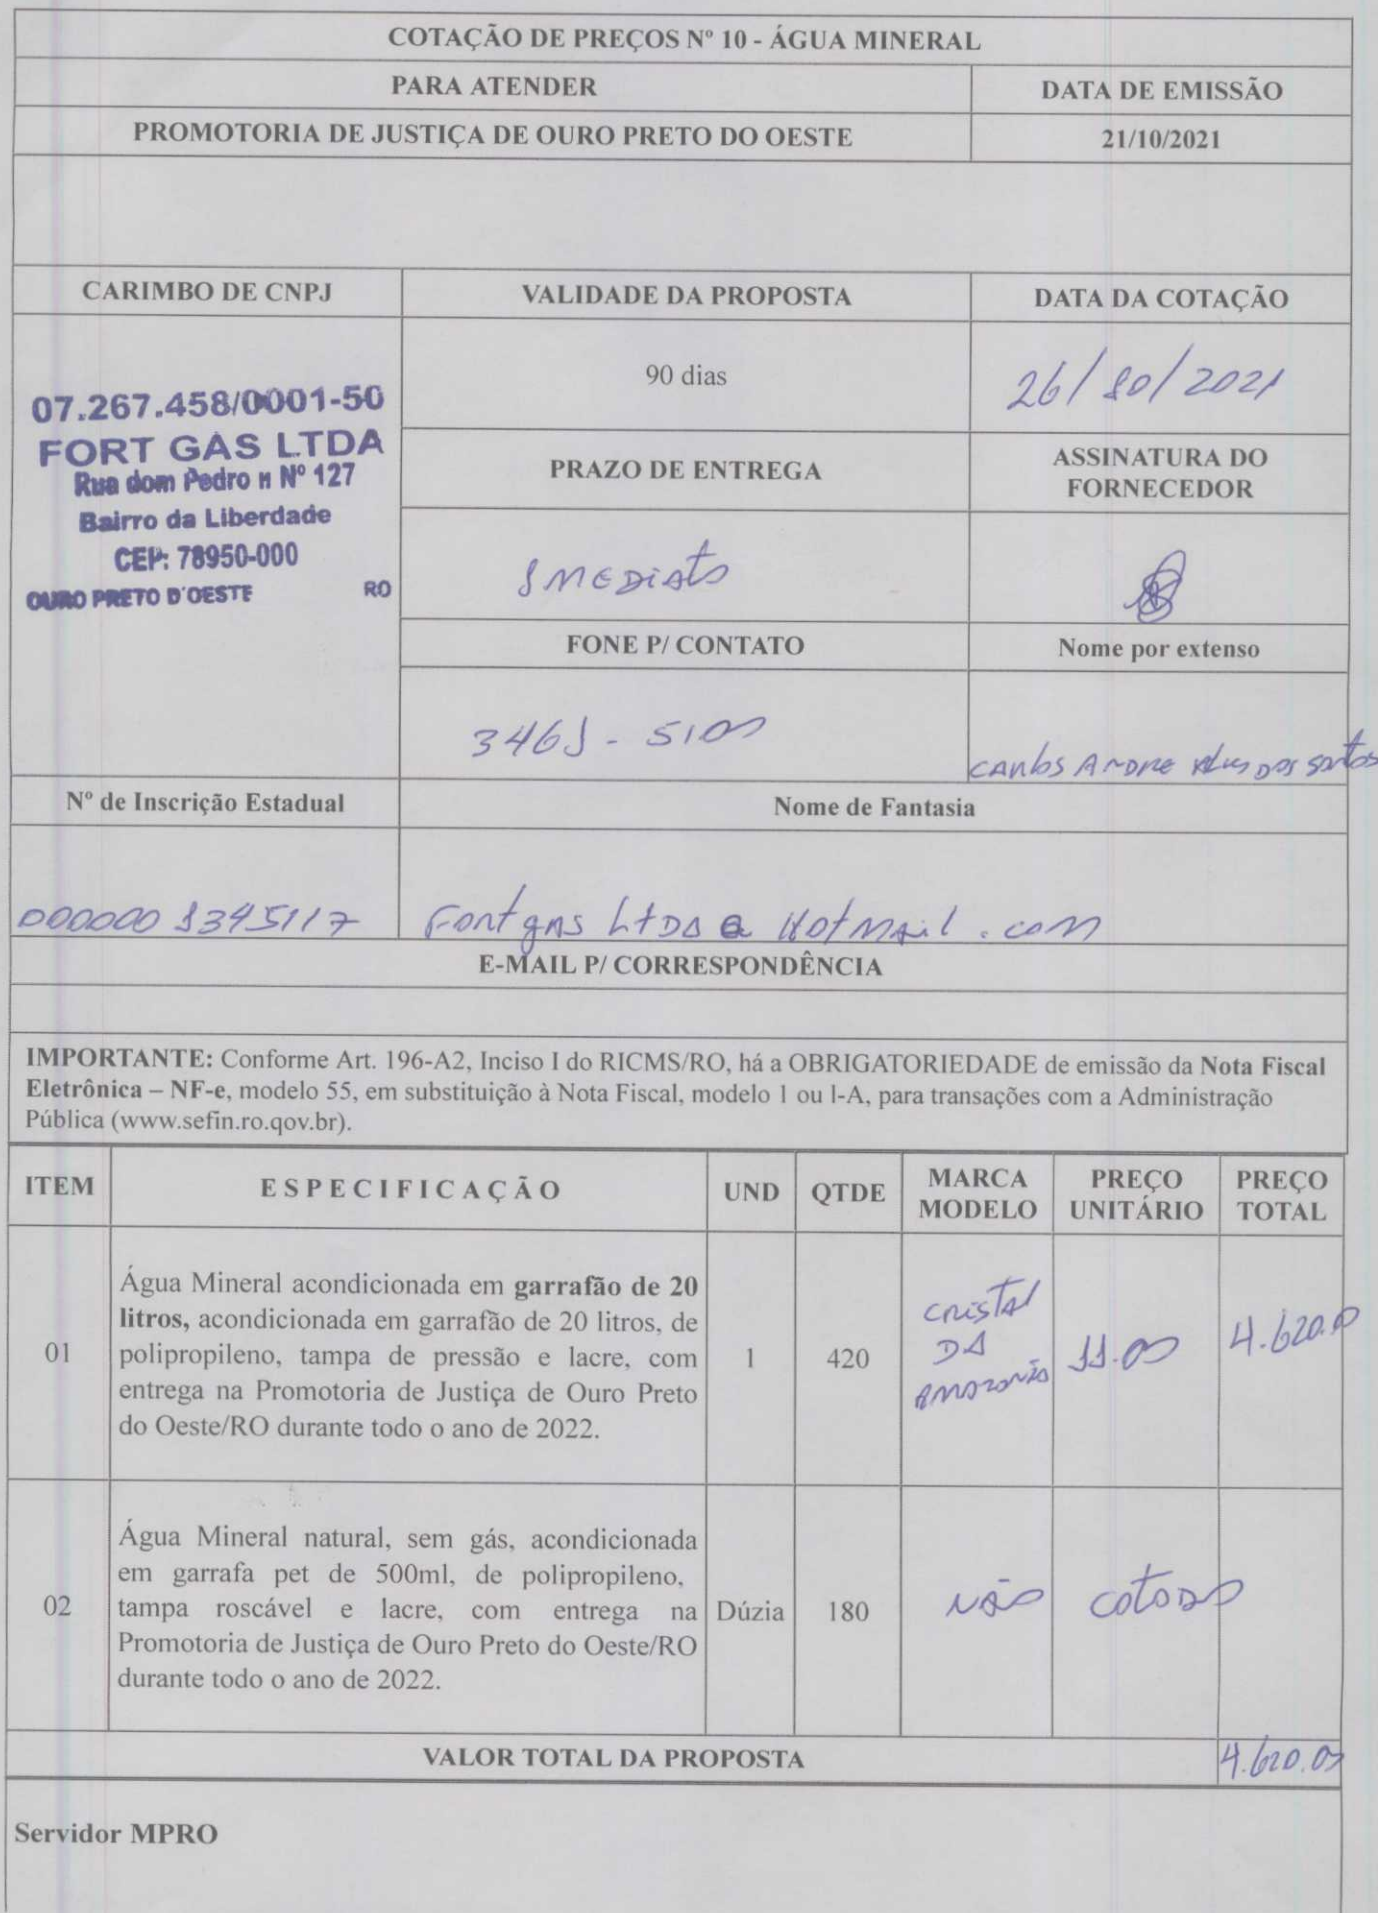 COTAÇÃO DE PREÇOS Nº 10 - ÁGUA MINERAL
PARA ATENDER
DATA DE EMISSÃO
PROMOTORIA DE JUSTIÇA DE OURO PRETO DO OESTE
21/10/2021
CARIMBO DE CNPJ
VALIDADE DA PROPOSTA
DATA DA COTAÇÃO
07.267.458/0001-50
FORT GAS LTDA
Rua dom Pedro II Nº 127
Bairro da Liberdade
CEP: 78950-000
OURO PRETO D'OESTE RO
90 dias
26/10/2021
PRAZO DE ENTREGA
ASSINATURA DO
FORNECEDOR
IMEDIATO
FONE P/ CONTATO
Nome por extenso
3461-5100
CARLOS ANDRE DOS SANTOS
Nº de Inscrição Estadual
Nome de Fantasia
0000001345117
Fortgas LTDA @ Hotmail.com
E-MAIL P/ CORRESPONDÊNCIA
IMPORTANTE: Conforme Art. 196-A2, Inciso I do RICMS/RO, há a OBRIGATORIEDADE de emissão da Nota Fiscal
Eletrônica – NF-e, modelo 55, em substituição à Nota Fiscal, modelo 1 ou l-A, para transações com a Administração
Pública (www.sefin.ro.qov.br).
ITEM
ESPECIFICAÇÃO
UND
QTDE
MARCA
MODELO
PREÇO
UNITÁRIO
PREÇO
TOTAL
01
Água Mineral acondicionada em garrafão de 20
litros, acondicionada em garrafão de 20 litros, de
polipropileno, tampa de pressão e lacre, com
entrega na Promotoria de Justiça de Ouro Preto
do Oeste/RO durante todo o ano de 2022.
1
420
CRISTAL
DA
AMAZONIA
11.00
4.620.0
02
Água Mineral natural, sem gás, acondicionada
em garrafa pet de 500ml, de polipropileno,
tampa roscável e lacre, com entrega na
Promotoria de Justiça de Ouro Preto do Oeste/RO
durante todo o ano de 2022.
Dúzia
180
NÃO COTADO
VALOR TOTAL DA PROPOSTA
4.620.00
Servidor MPRO